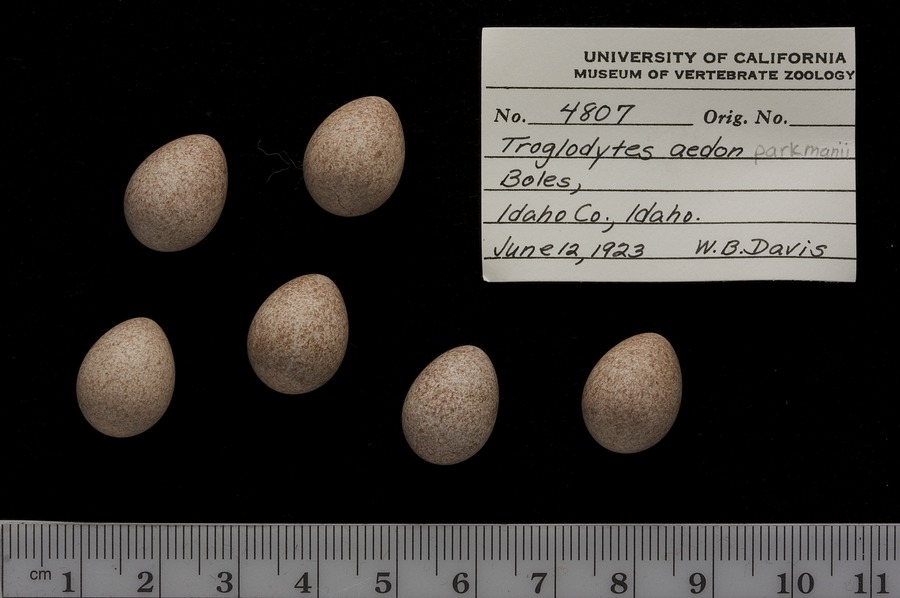 UNIVERSITY OF CALIFORNIA
MUSEUM OF VERTEBRATE ZOOLOGY
No. 4807 Orig. No.
Troglodytes aedon parkmanii
Boles,
Idaho Co., Idaho.
June 12, 1923 W.B. Davis
cm 1 2 3 4 5 6 7 8 9 10 11